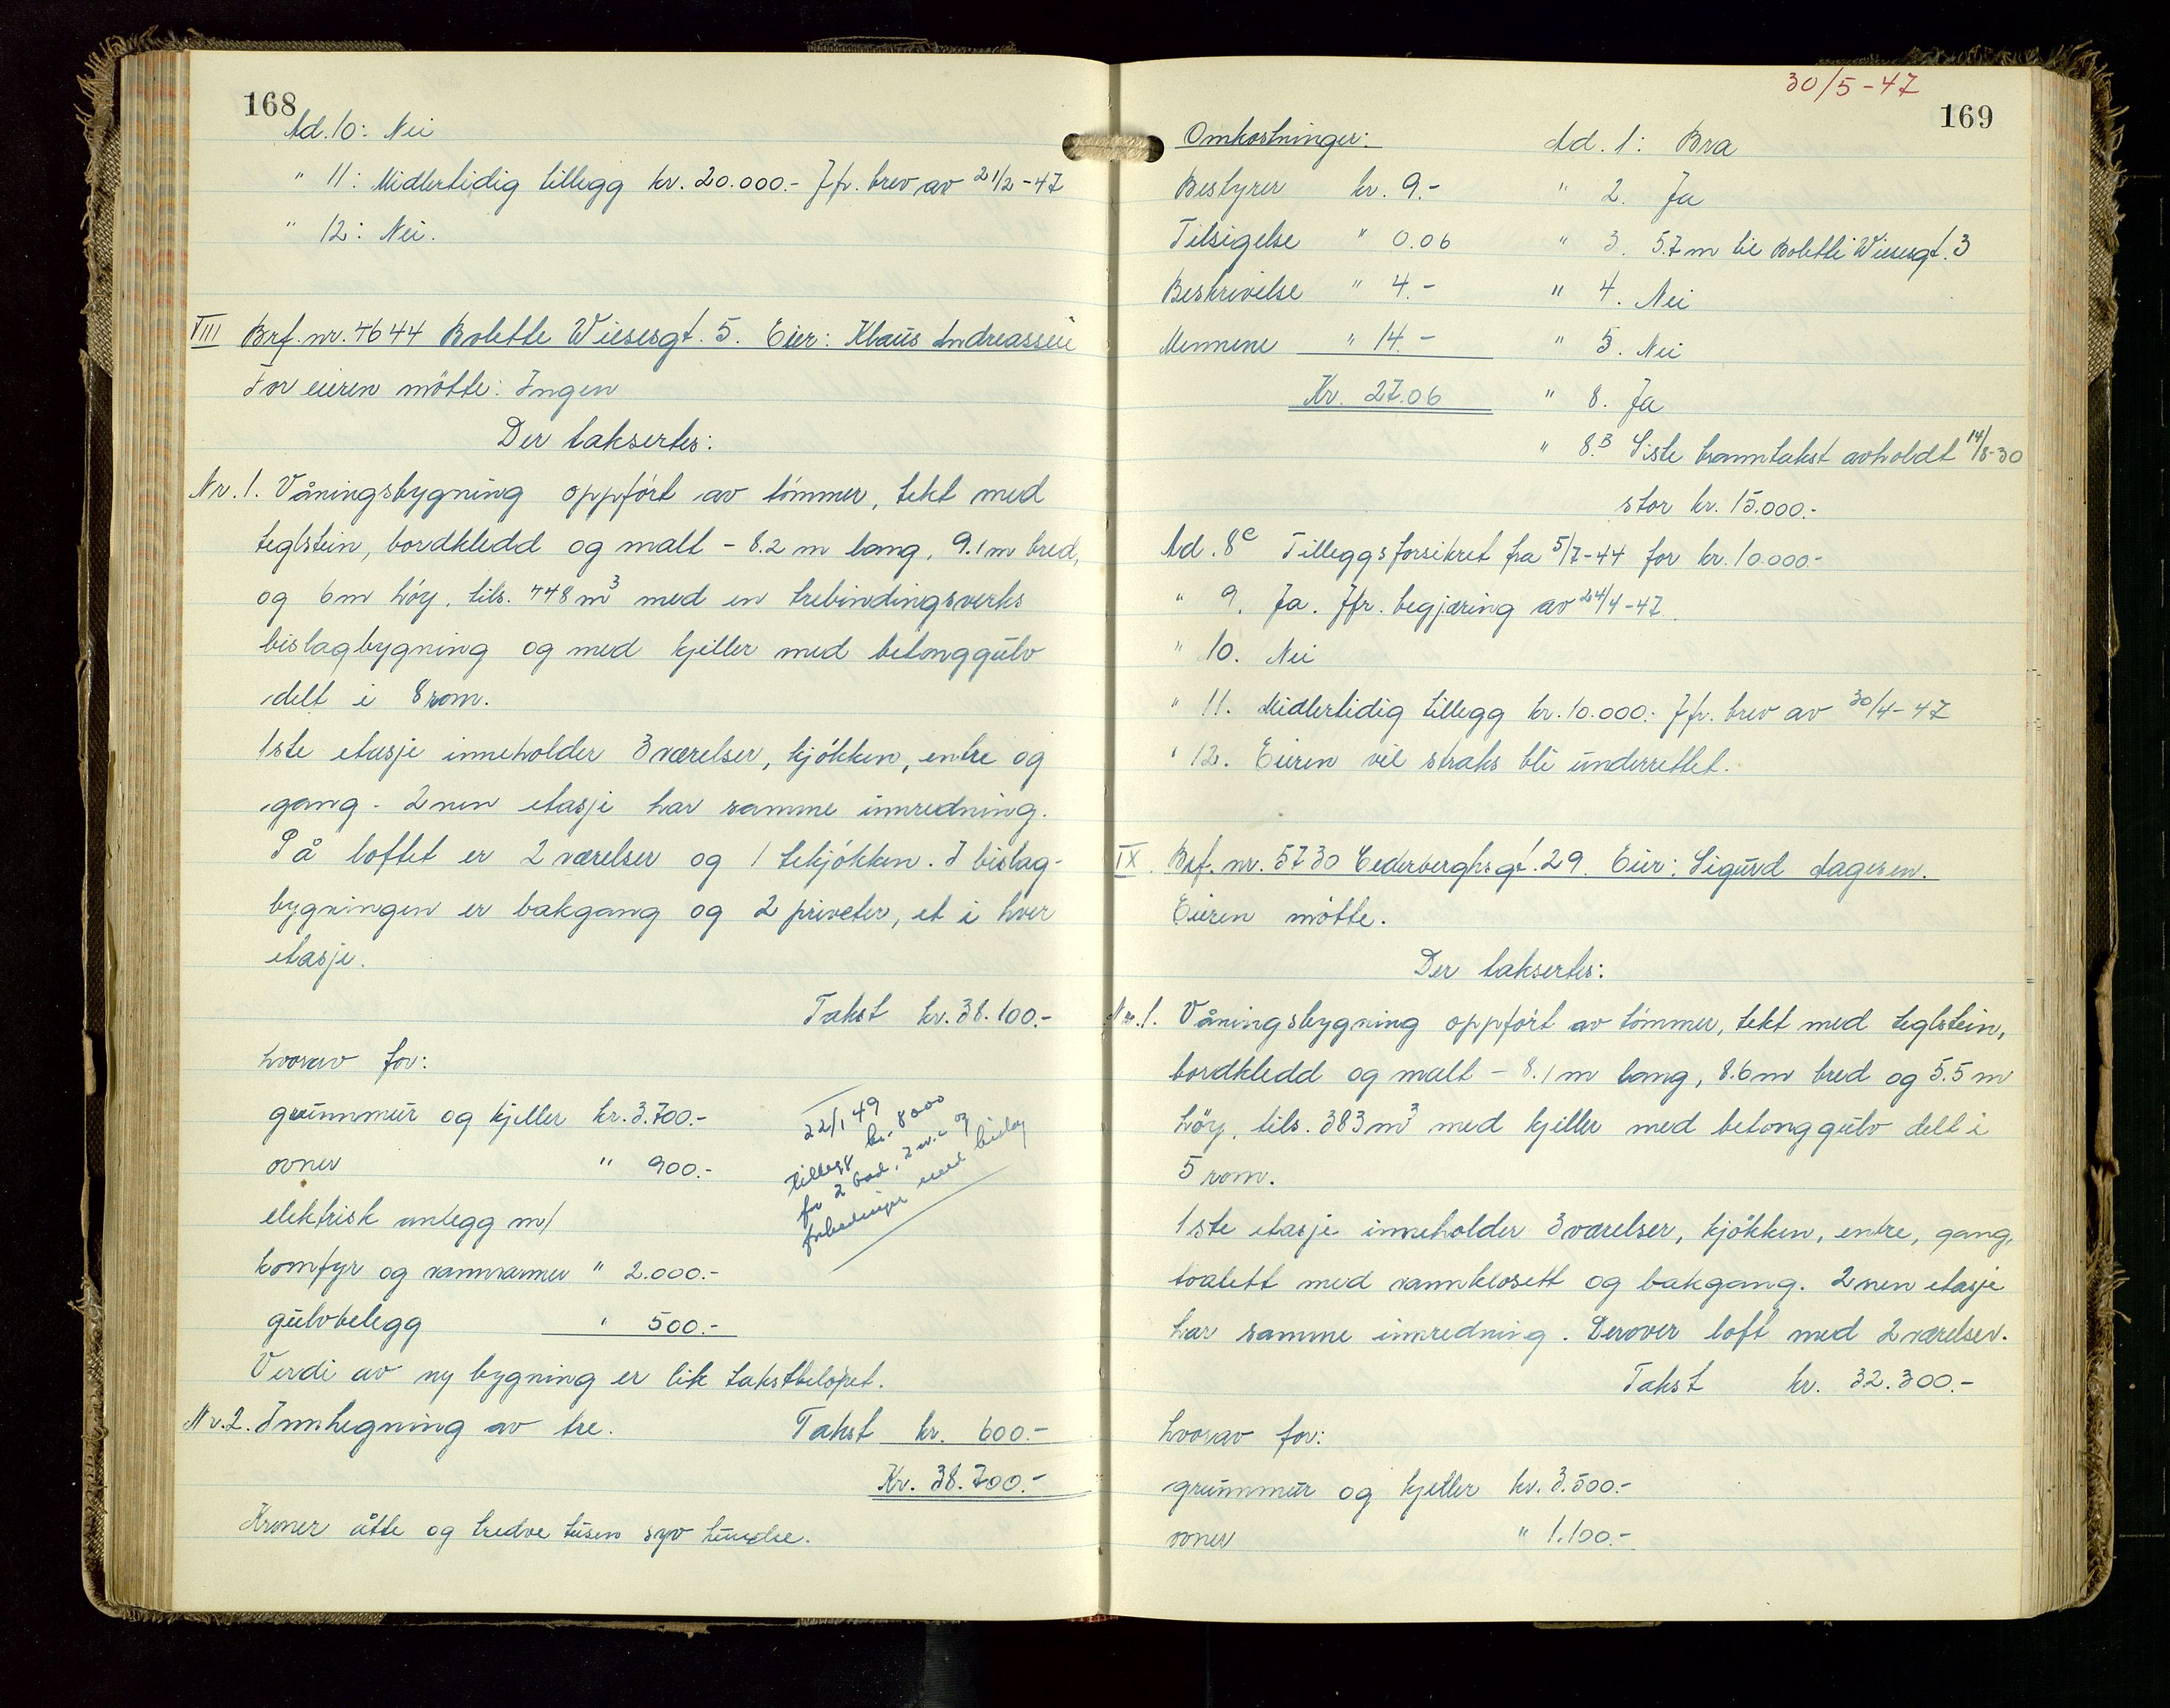 168
Ad. 10: Nei
" 11: Midlertidig tillegg kr. 20.000.- Jfr. brev av 21/2-47
" 12: Nei.
VIII Brf. nr. 4644 Bolette Wiesesgt. 5. Eier: Klaus Andreassen
For eieren møtte: Ingen
Der taksertes:
Nr. 1. Våningsbygning oppført av tømmer, tekt med
teglstein, bordkledd og malt - 8.2 m lang, 9.1 m bred,
og 6 m høy, tils. 448 m³ med en trebindingsverks
bislagbygning og med kjeller med betonggulv
delt i 8 rom.
1ste etasje inneholder 3 værelser, kjøkken, entre og
gang. 2nen etasje har samme innredning.
På loftet er 2 værelser og 1 tekjøkken. I bislag-
bygningen er bakgang og 2 priveter, et i hver
etasje.
Takst kr. 38.100.-
hvorav for:
grunnmur og kjeller kr. 3.700.-
ovner " 900.-
elektrisk anlegg m/
komfyr og vannvarmer " 2.000.-
gulvbelegg " 500.-
22/1 49
tillegg kr. 8000
for 2 bad, 2 w.c. og
forbedringer med bislag
Verdi av ny bygning er lik takstbeløpet.
Nr. 2. Innhegning av tre. Takst kr. 600.-
Kr. 38.700.-
Kroner åtte og tredve tusen syv hundre.
30/5-47
169
Omkostninger:
Bestyrer kr. 9.-
Tilsigelse " 0.06
Beskrivelse " 4.-
Mennene " 14.-
Kr. 27.06
Ad. 1: Bra
" 2. Ja
" 3. 5.7 m til Bolette Wiesesgt. 3
" 4. Nei
" 5. Nei
" 8. Ja
" 8.B Siste branntakst avholdt 14/8-30
stor kr. 15.000.-
Ad. 8c Tilleggsforsikret fra 5/7-44 for kr. 10.000.-
" 9. Ja. Jfr. begjæring av 24/4-47.
" 10. Nei
" 11. Midlertidig tillegg kr. 10.000.- Jfr. brev av 30/4-47
" 12. Eieren vil straks bli underrettet.
IX. Brf. nr. 5730 Cederberghsgt. 29. Eier: Sigurd Aagesen.
Eieren møtte.
Der taksertes:
Nr. 1. Våningsbygning oppført av tømmer, tekt med teglstein,
bordkledd og malt - 8.1 m lang, 8.6 m bred og 5.5 m
høy, tils. 383 m³ med kjeller med betonggulv delt i
5 rom.
1ste etasje inneholder 3 værelser, kjøkken, entre, gang,
toalett med vannklosett og bakgang. 2nen etasje
har samme innredning. Derover loft med 2 værelser.
Takst kr. 32.300.-
hvorav for:
grunnmur og kjeller kr. 3.500.-
ovner " 1.100.-